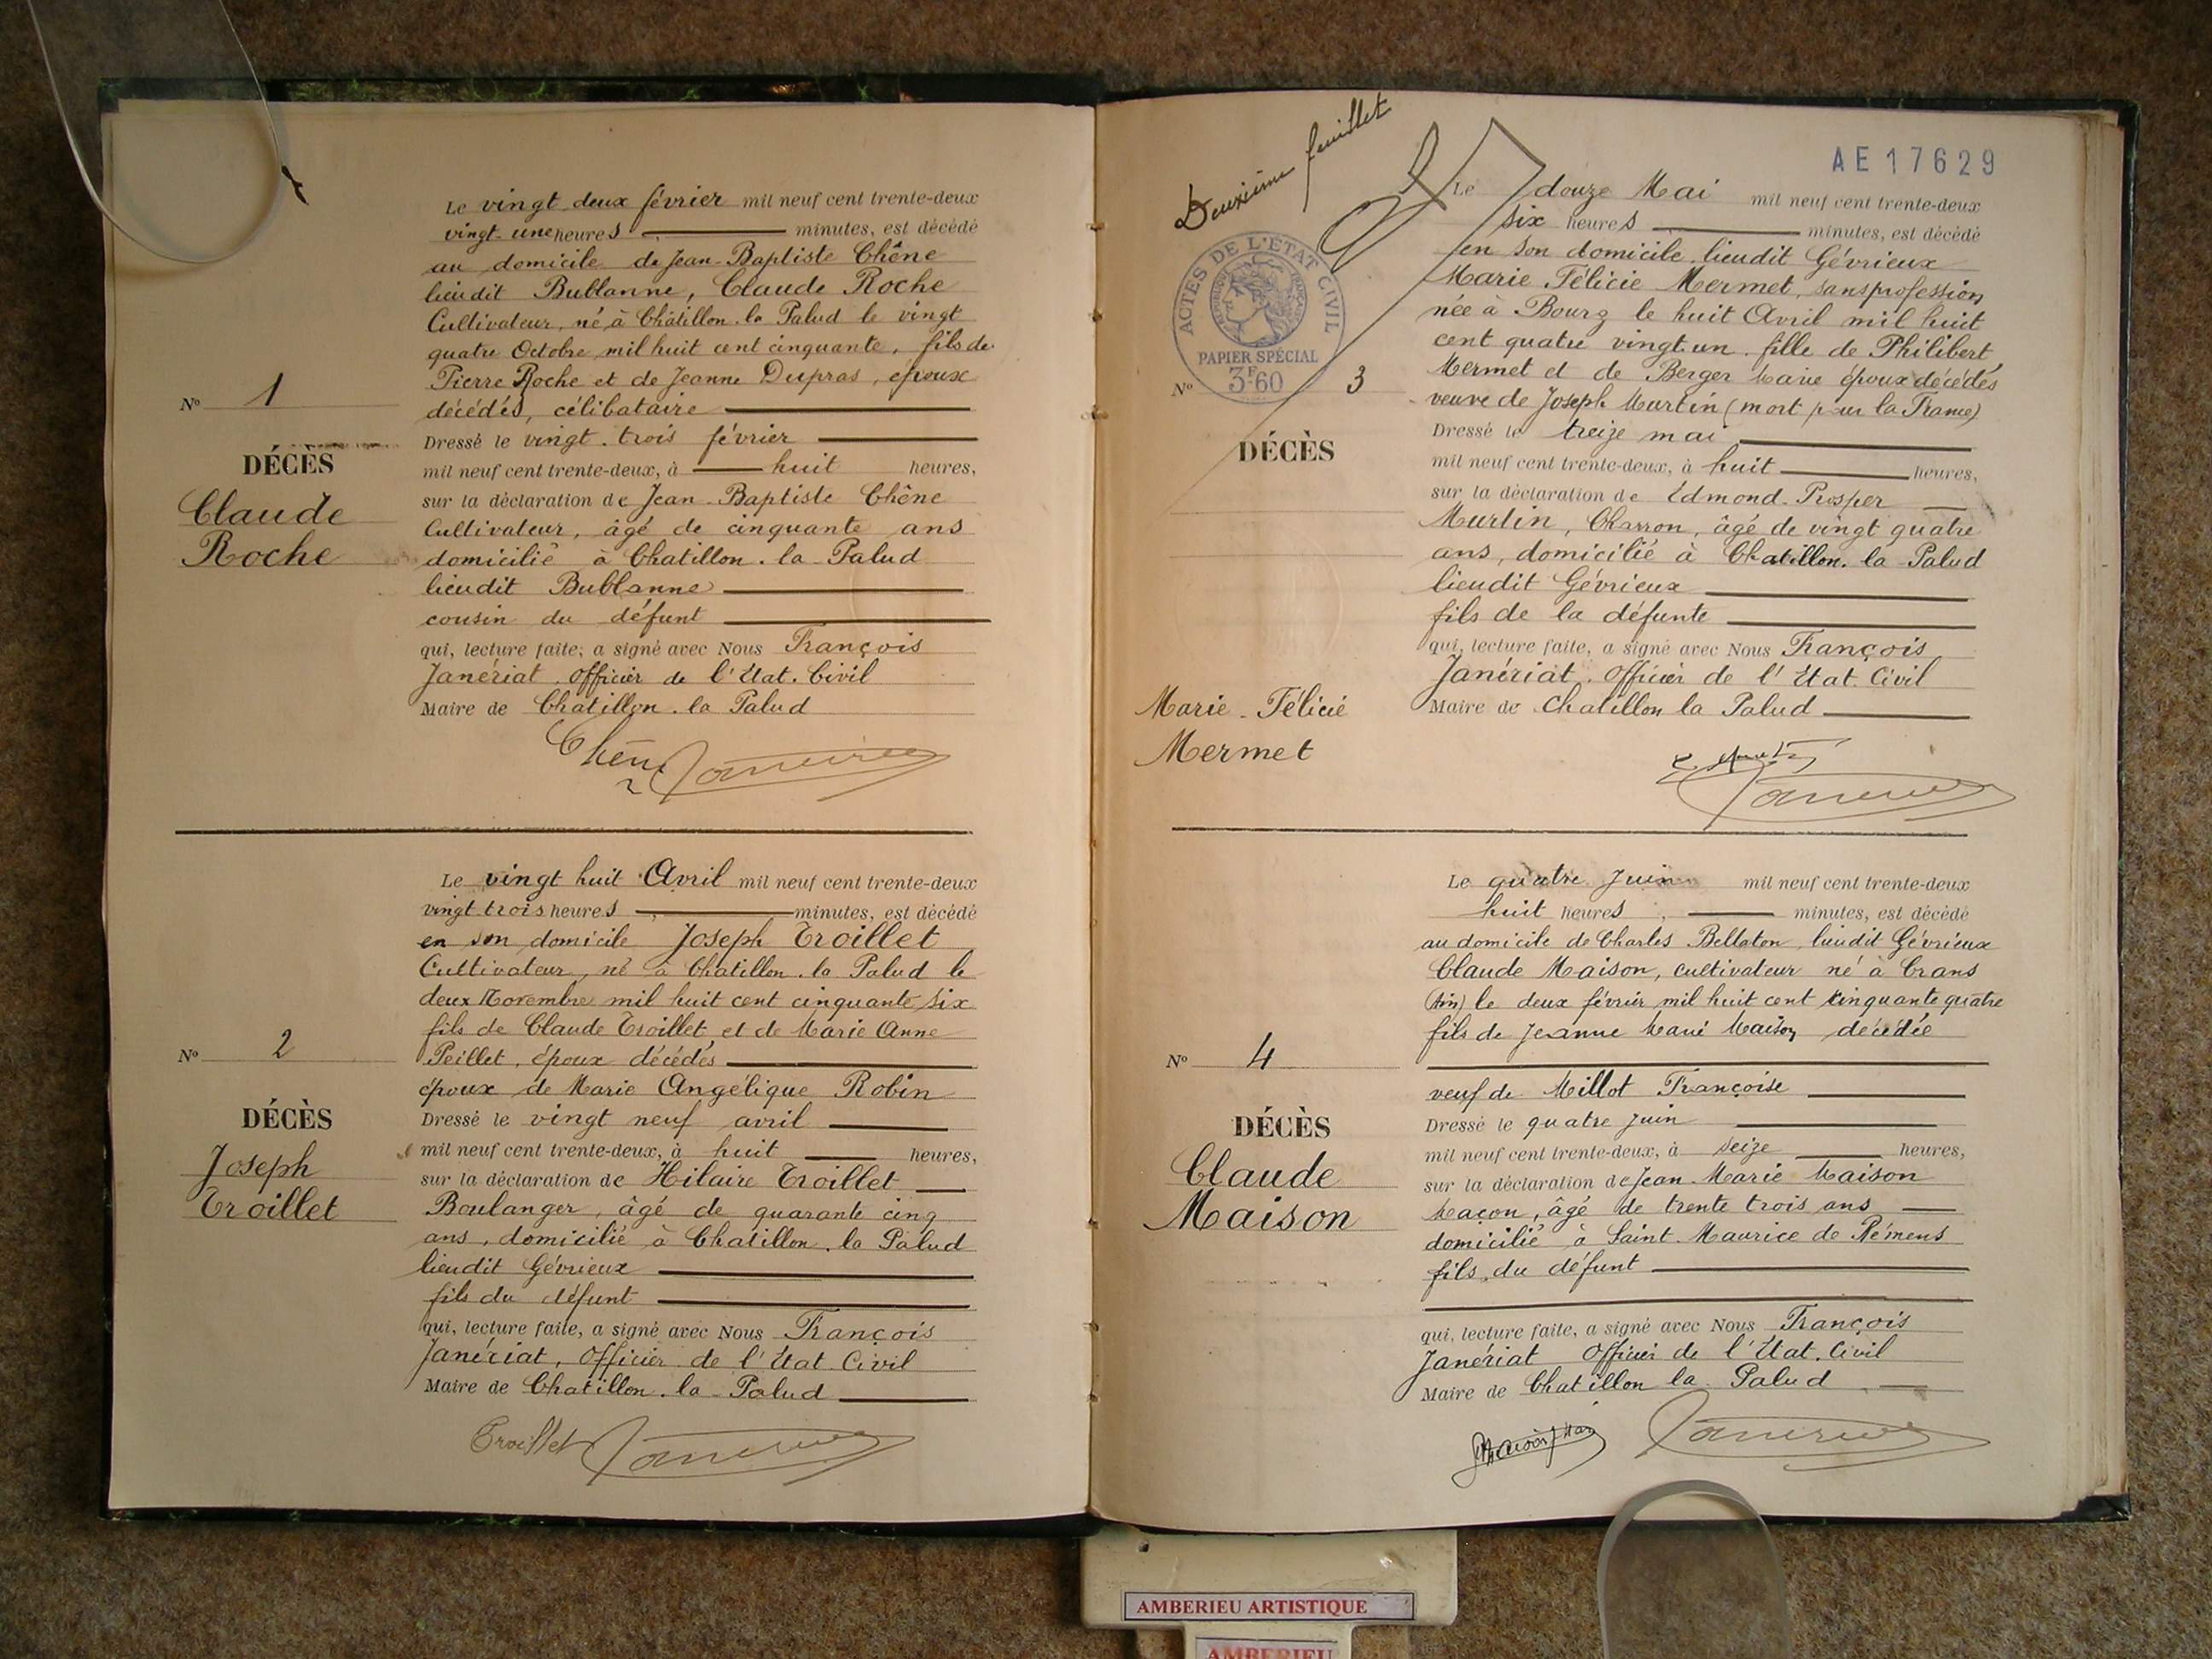 Le vingt deux février mil neuf cent trente-deux
vingt-une heures minutes, est décédé
au domicile de Jean-Baptiste Chêne
lieudit Bublanne, Claude Roche
Cultivateur, né à Châtillon-la Palud le vingt
quatre Octobre mil huit cent cinquante, fils de
Pierre Roche et de Jeanne Dupras, époux
décédés, célibataire
No 1
DÉCÈS
Claude
Roche
Dressé le vingt-trois février
mil neuf cent trente-deux, à huit heures,
sur la déclaration de Jean-Baptiste Chêne
Cultivateur, âgé de cinquante ans
domicilié à Chatillon-la-Palud
lieudit Bublanne
cousin du défunt
qui, lecture faite, a signé avec Nous François
Janériat, Officier de l'Etat-Civil
Maire de Chatillon-la Palud
Chêne
Le vingt huit Avril mil neuf cent trente-deux
vingt trois heures minutes, est décédé
en son domicile Joseph Troillet
Cultivateur, né à Chatillon-la Palud le
deux Novembre mil huit cent cinquante six
fils de Claude Troillet et de Marie Anne
Peillet, époux décédés
époux de Marie Angélique Robin
No 2
DÉCÈS
Joseph
Troillet
Dressé le vingt neuf avril
mil neuf cent trente-deux, à huit heures,
sur la déclaration de Hilaire Troillet
Boulanger, âgé de quarante cinq
ans, domicilié à Chatillon-la Palud
lieudit Gévrieux
fils du défunt
qui, lecture faite, a signé avec Nous François
Janériat, Officier de l'Etat-Civil
Maire de Chatillon-la-Palud
Troillet
Deuxième feuillet
AE17629
ACTES DE L'ÉTAT CIVIL
PAPIER SPÉCIAL
3F60
Le douze Mai mil neuf cent trente-deux
six heures minutes, est décédé
en son domicile, lieudit Gévrieux
Marie Félicie Mermet, sans profession
née à Bourg le huit Avril mil huit
cent quatre vingt-un, fille de Philibert
Mermet et de Berger Marie époux décédés
veuve de Joseph Martin (mort pour la France)
No 3
DÉCÈS
Marie-Félicie
Mermet
Dressé le treize mai
mil neuf cent trente-deux, à huit heures,
sur la déclaration de Edmond-Prosper
Martin, Charron, âgé de vingt quatre
ans, domicilié à Chatillon-la-Palud
lieudit Gévrieux
fils de la défunte
qui, lecture faite, a signé avec Nous François
Janériat, Officier de l'Etat-Civil
Maire de Chatillon la Palud
Le quatre Juin mil neuf cent trente-deux
huit heures minutes, est décédé
au domicile de Charles Bellaton, lieudit Gévrieux
Claude Maison, cultivateur né à Crans
(Ain) le deux février mil huit cent cinquante quatre
fils de Jeanne Marie Maison décédée
veuf de Millot Françoise
No 4
DÉCÈS
Claude
Maison
Dressé le quatre juin
mil neuf cent trente-deux, à seize heures,
sur la déclaration de Jean-Marie Maison
Maçon, âgé de trente trois ans
domicilié à Saint-Maurice de Rémens
fils du défunt
qui, lecture faite, a signé avec Nous François
Janériat Officier de l'Etat-Civil
Maire de Chatillon la Palud
AMBERIEU ARTISTIQUE
AMBERIEU